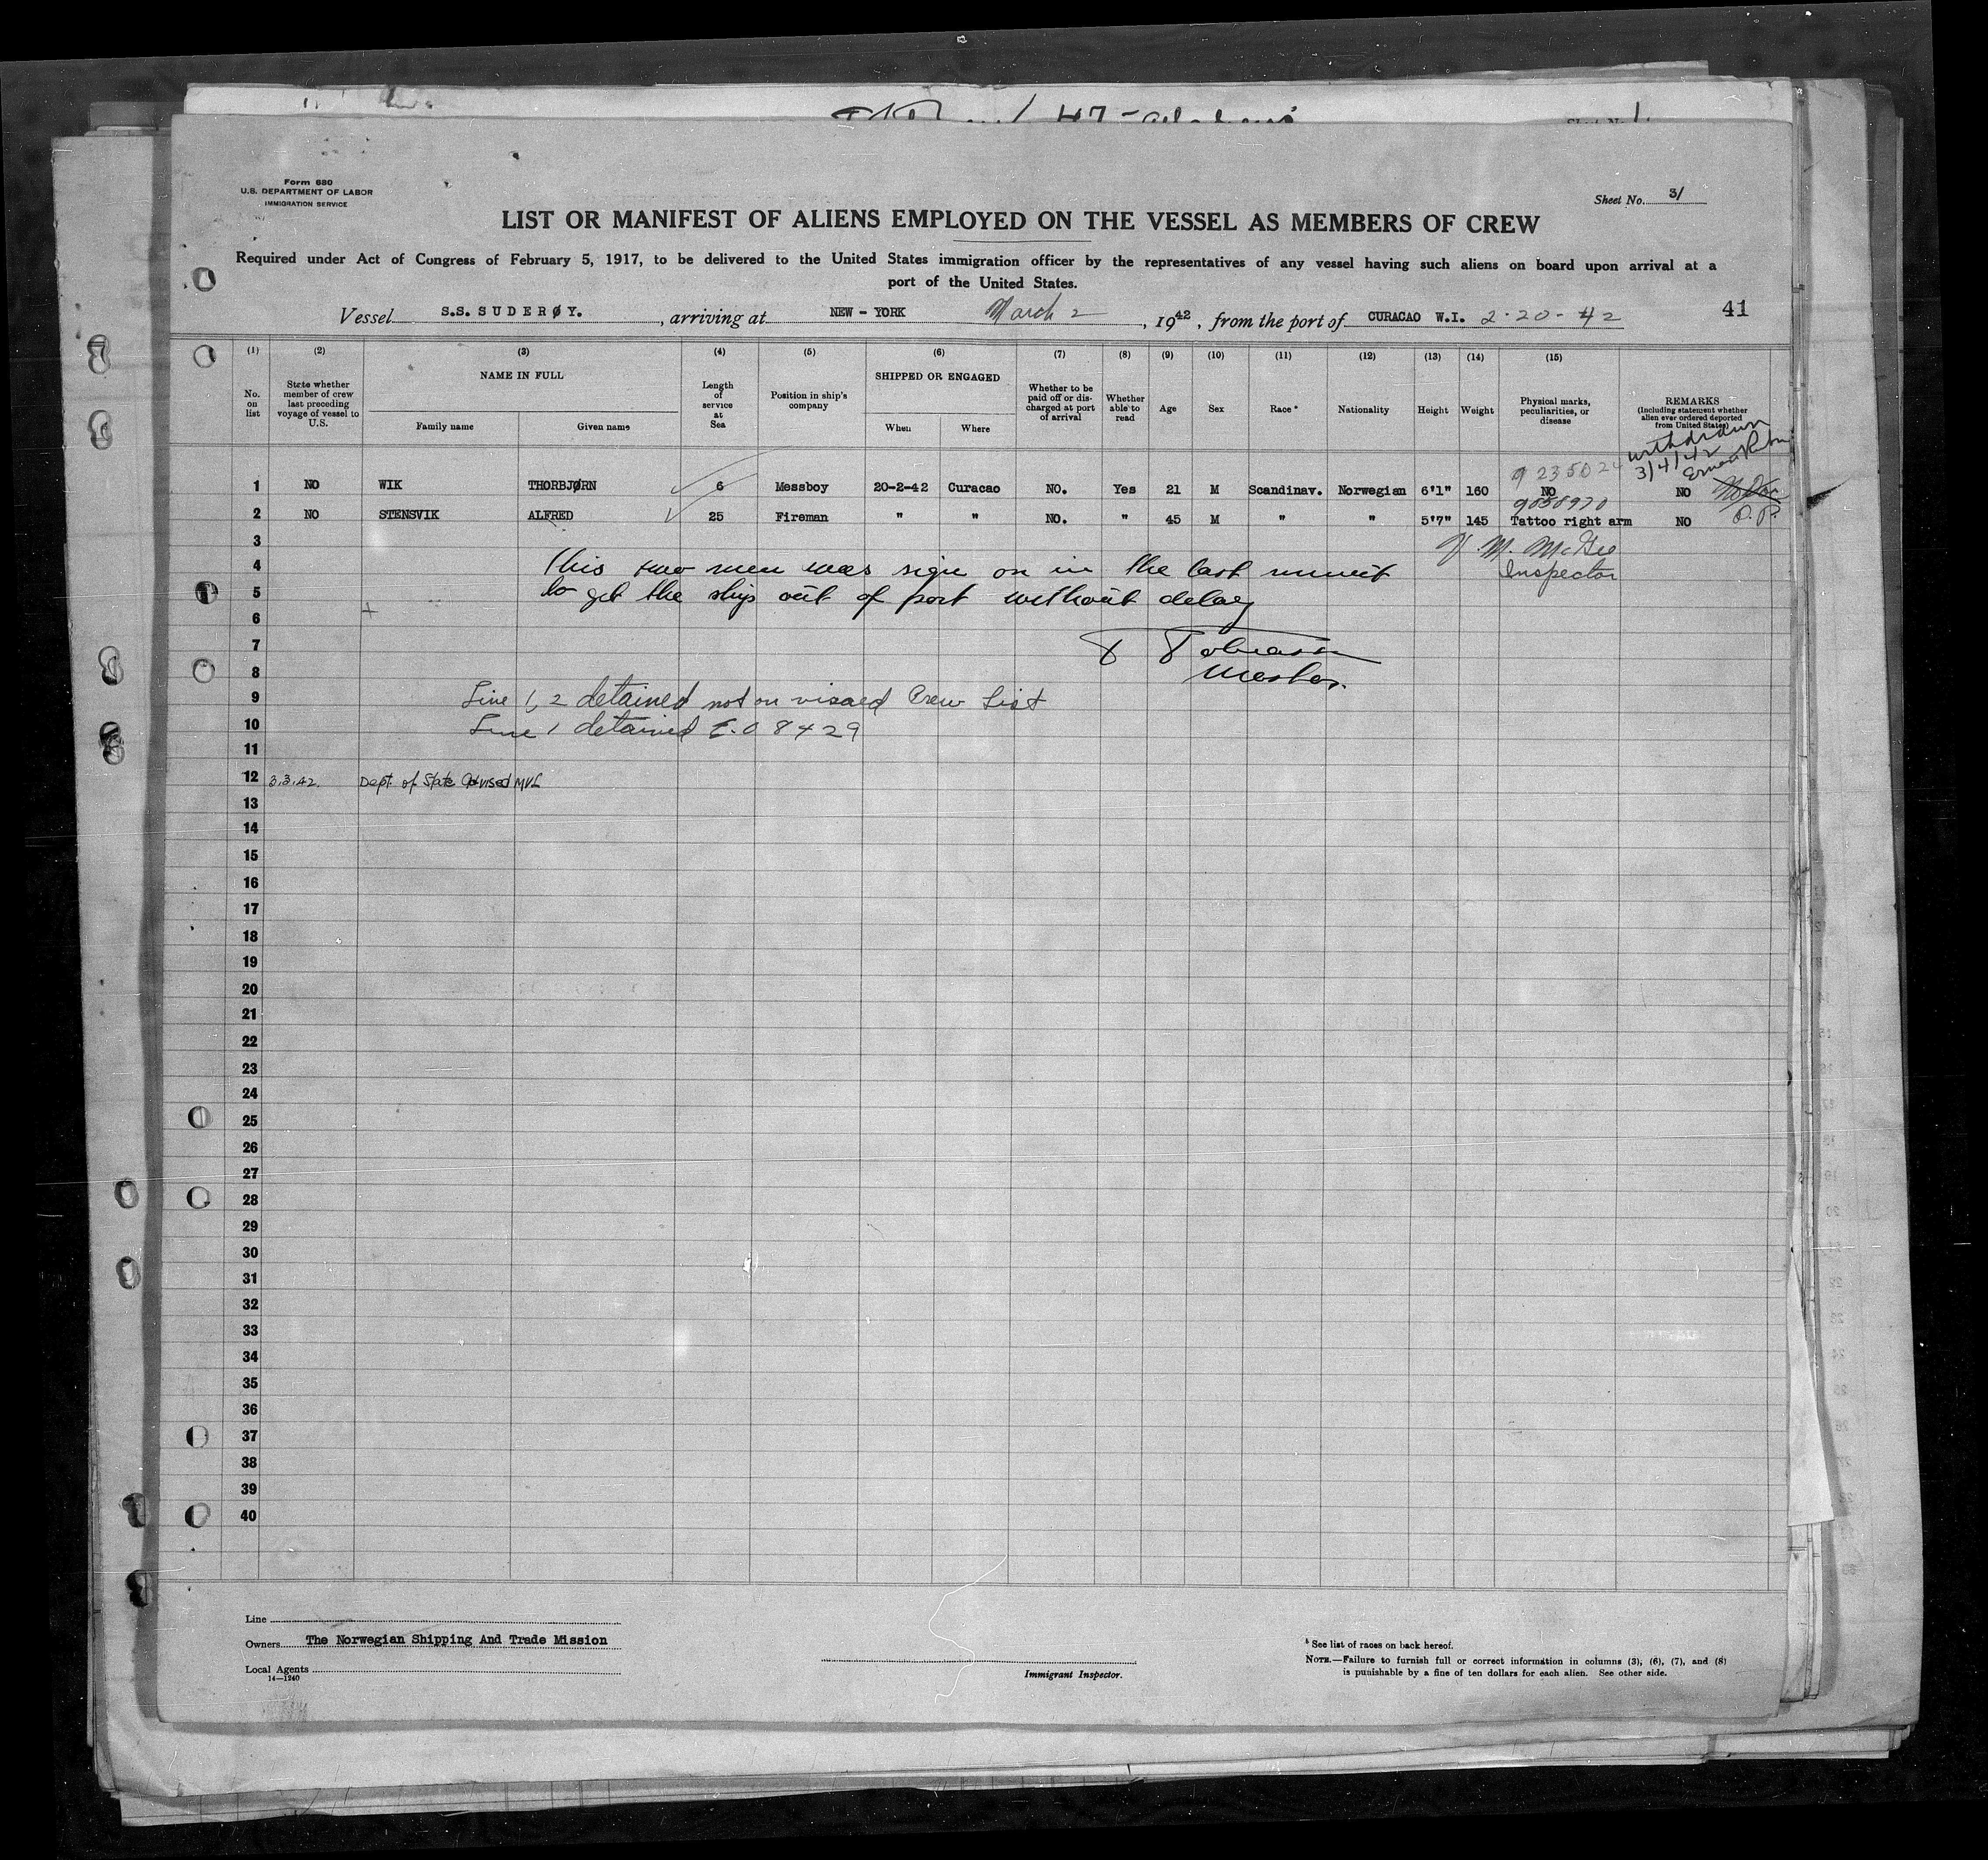 Form 680
U.S. DEPARTMENT OF LABOR
IMMIGRATION SERVICE
Sheet No. 3/
LIST OR MANIFEST OF ALIENS EMPLOYED ON THE VESSEL AS MEMBERS OF CREW
Required under Act of Congress of February 5, 1917, to be delivered to the United States immigration officer by the representatives of any vessel having such aliens on board upon arrival at a
port of the United States.
Vessel S.S. SUDERØY. , arriving at NEW - YORK March 2 , 1942 , from the port of CURACAO W.I. 2-20-42 41
(1) (2) (3) (4) (5) (6) (7) (8) (9) (10) (11) (12) (13) (14) (15)
No. on list
State whether member of crew last preceding voyage of vessel to U.S.
NAME IN FULL
Family name Given name
Length of service at Sea
Position in ship's company
SHIPPED OR ENGAGED
When Where
Whether to be paid off or discharged at port of arrival
Whether able to read
Age
Sex
Race *
Nationality
Height
Weight
Physical marks, peculiarities, or disease
REMARKS
(Including statement whether alien ever ordered deported from United States)
withdrawn
3/4/42
9235024
1 NO WIK THORBJØRN 6 Messboy 20-2-42 Curacao NO. Yes 21 M Scandinav. Norwegian 6'1" 160 NO NO No Doc
9050970
2 NO STENSVIK ALFRED 25 Fireman " " NO. " 45 M " " 5'7" 145 Tattoo right arm NO O.P.
3
4
5
6
7
8
9
10
11
12
13
14
15
16
17
18
19
20
21
22
23
24
25
26
27
28
29
30
31
32
33
34
35
36
37
38
39
40
M. McGee
Inspector
this two men was sign on in the last minuit
to get the ship out of port without delay
T Tobiassen
Master.
Line 1, 2 detained not on visaed Crew List
Line 1 detained E.O 8429
3.3.42. Dept. of State Advised MVL
Line
Owners The Norwegian Shipping And Trade Mission
Local Agents
14—1240
Immigrant Inspector.
* See list of races on back hereof.
NOTE.—Failure to furnish full or correct information in columns (3), (6), (7), and (8)
is punishable by a fine of ten dollars for each alien. See other side.